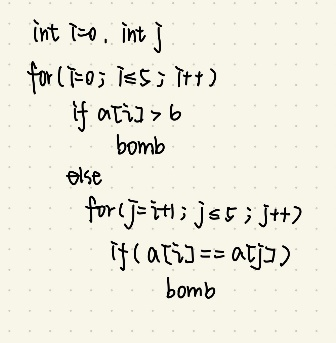 int i=0, int j
for(i=0; i≤5; i++)
if a[i] > 6
bomb
else
for(j=i+1; j≤5; j++)
if(a[i]==a[j])
bomb